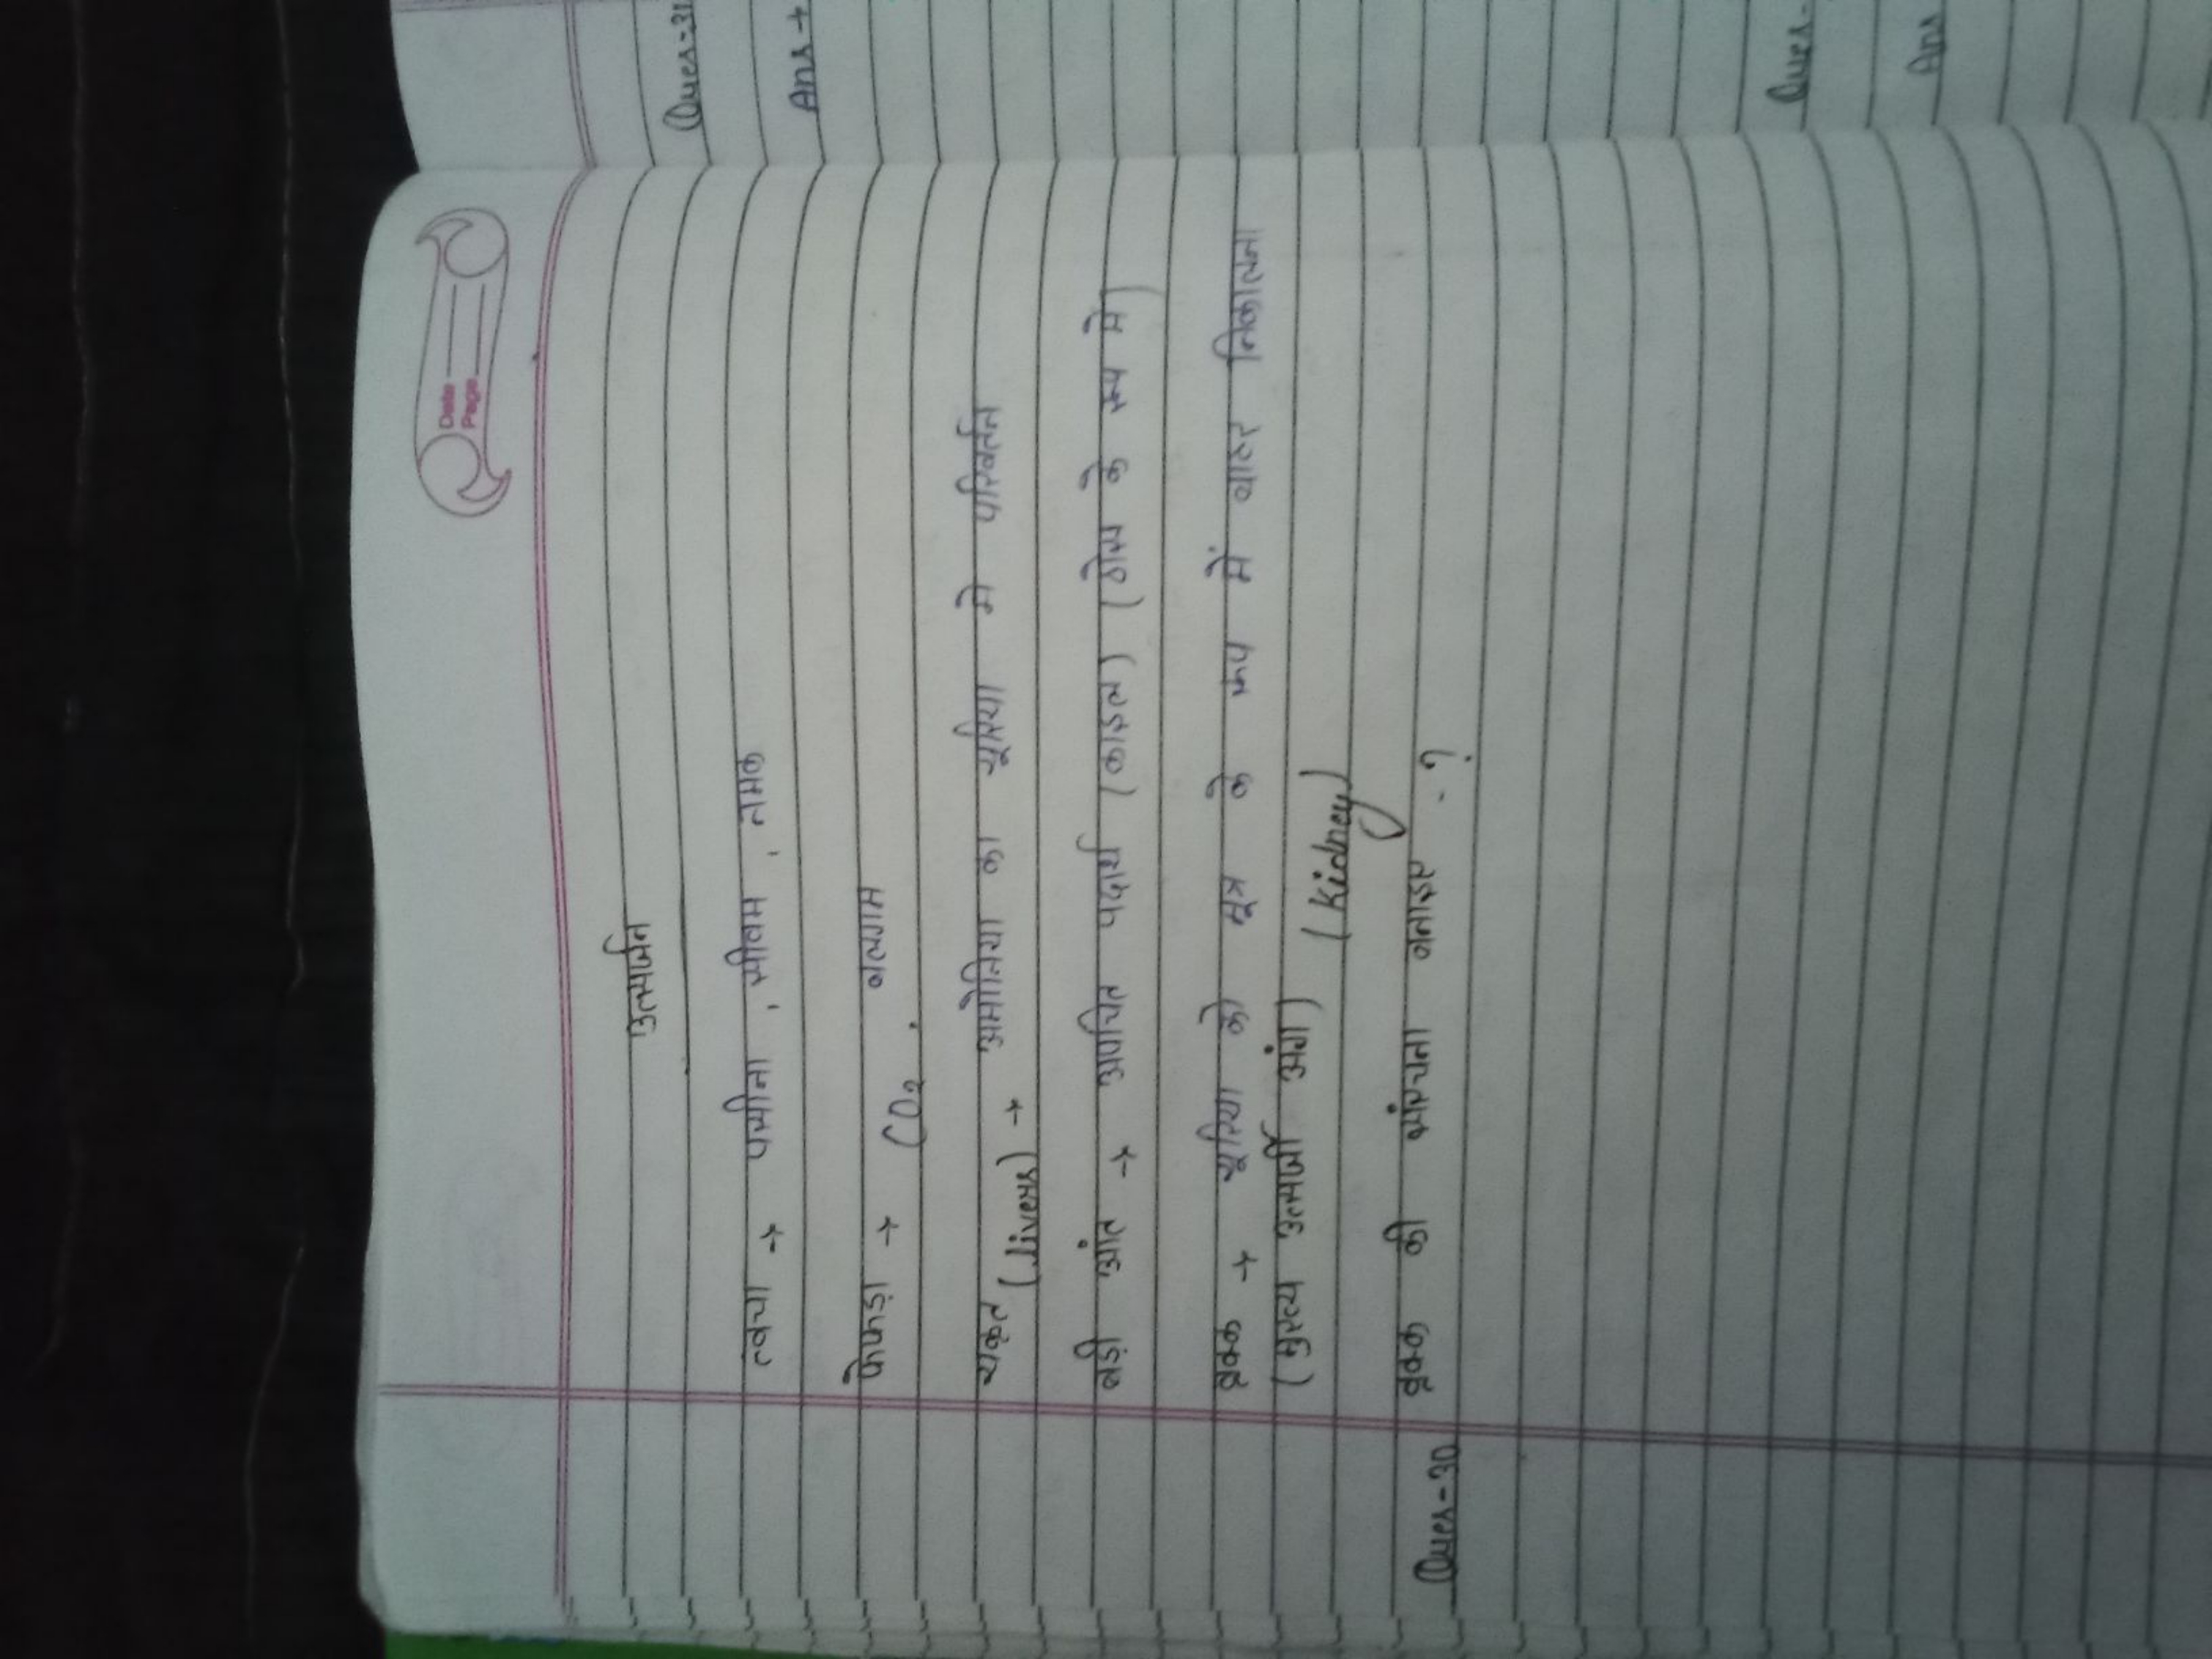 Date
Page
उत्सर्जन
त्वचा → पसीना , सीबम , नमक
फेफड़ा → CO₂ , बलगम
यकृत (liver) → अमोनिया का यूरिया मे परिवर्तन
बड़ी आंत → अपचित पदार्थ (काइल) (ठोस के रूप मे)
वृक्क → यूरिया को मूत्र के रूप में बाहर निकालना
(मुख्य उत्सर्जी अंग) (Kidney)
Ques-30 वृक्क की संरचना बनाइए - ?
Ques-31
Ans →
Ques-
Ans